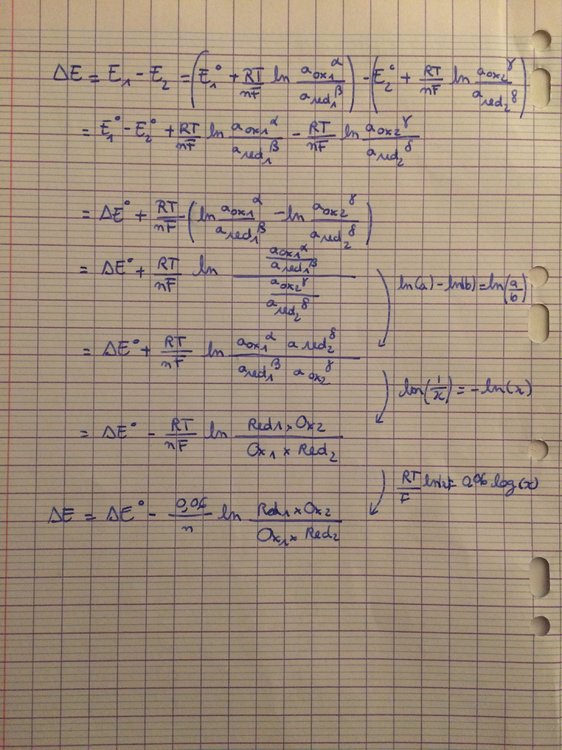 ΔE = E₁ - E₂ = (E₁° + RT/nF ln a_ox₁^α / a_red₁^β) - (E₂° + RT/nF ln a_ox₂^γ / a_red₂^δ)
= E₁° - E₂° + RT/nF ln a_ox₁^α / a_red₁^β - RT/nF ln a_ox₂^γ / a_red₂^δ
= ΔE° + RT/nF (ln a_ox₁^α / a_red₁^β - ln a_ox₂^γ / a_red₂^δ)
= ΔE° + RT/nF ln (a_ox₁^α / a_red₁^β) / (a_ox₂^γ / a_red₂^δ)
ln(a) - ln(b) = ln(a/b)
= ΔE° + RT/nF ln a_ox₁^α a_red₂^δ / a_red₁^β a_ox₂^γ
ln(1/x) = -ln(x)
= ΔE° - RT/nF ln Red₁ × Ox₂ / Ox₁ × Red₂
RT/F ln x = 0,06 log(x)
ΔE = ΔE° - 0,06/n ln Red₁ × Ox₂ / Ox₁ × Red₂